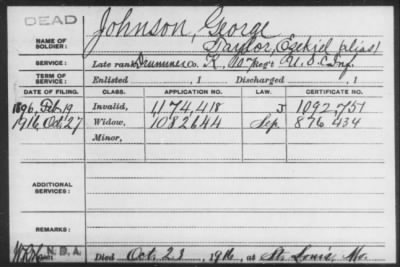 DEAD
NAME OF SOLDIER: Johnson, George
Taylor, Ezekiel (alias)
SERVICE: Late rank Drummer Co. K, 107 Reg't U.S.C. Inf.
TERM OF SERVICE: Enlisted , 1 Discharged , 1
DATE OF FILING. CLASS. APPLICATION NO. LAW. CERTIFICATE NO.
1896, Feb 19 Invalid, 1,174,418 J 1,092,751
1916, Oct. 27 Widow, 1082644 Sep. 876 434
Minor,
ADDITIONAL SERVICES:
REMARKS:
N.D.A. Died Oct. 23, 1916, at St. Louis, Mo.